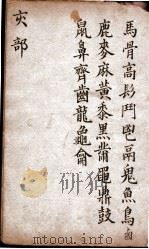 馬骨高髟鬥鬯鬲鬼魚鳥鹵
鹿麥麻黃黍黑黹黽鼎鼓
鼠鼻齊齒龍龜龠
亥部